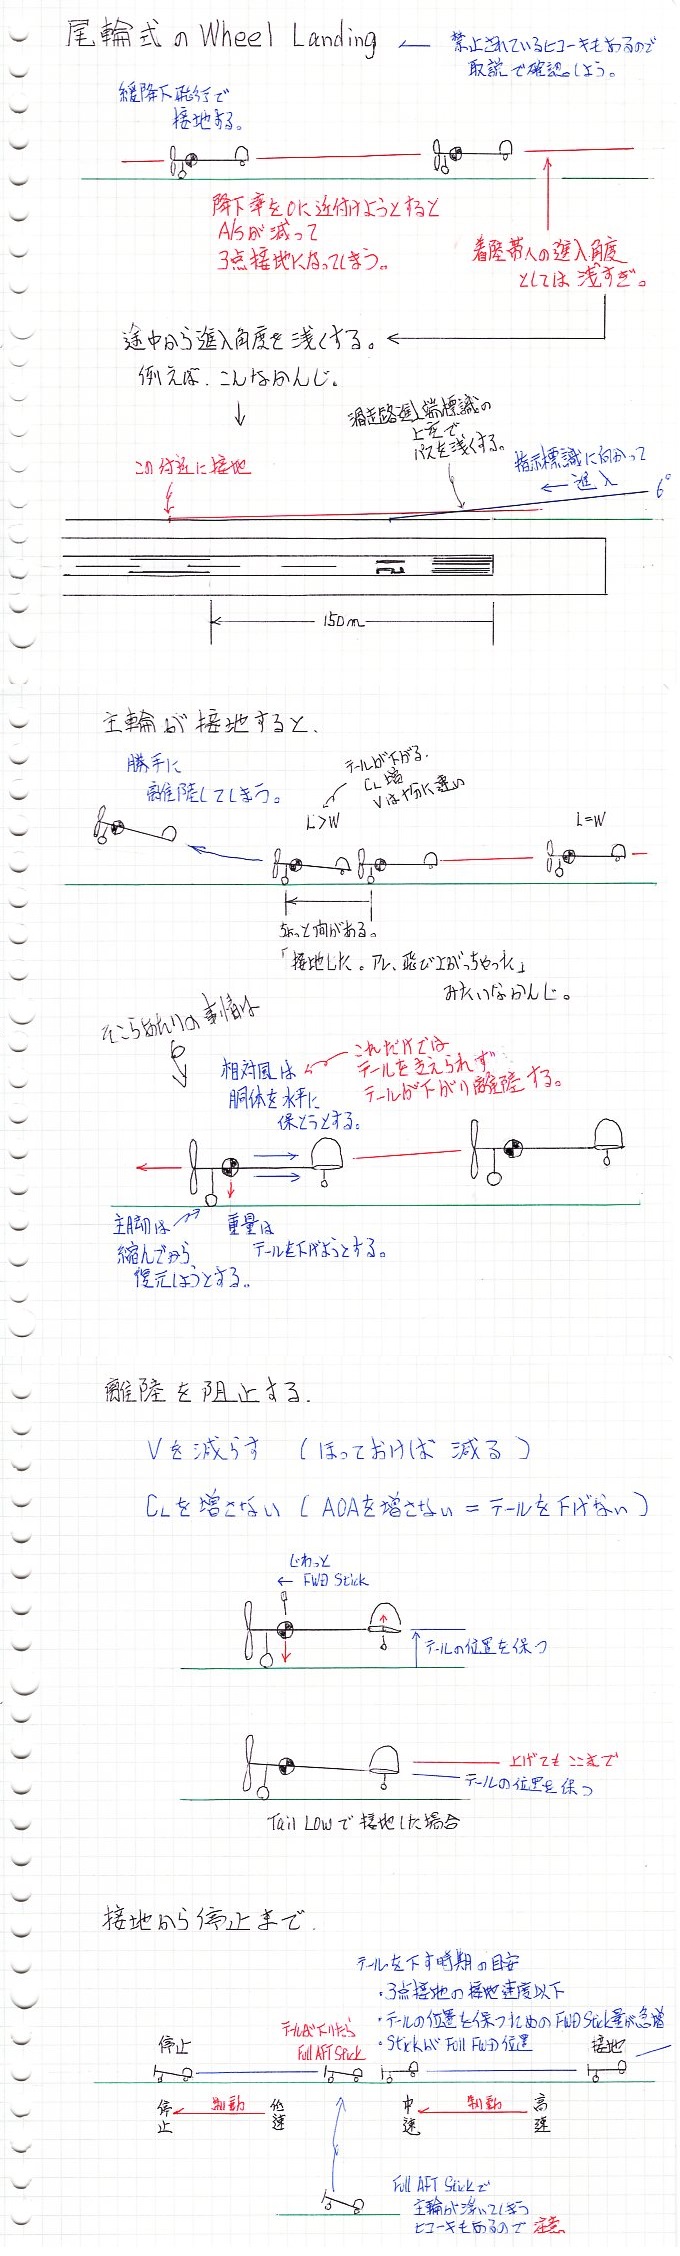 尾輪式の Wheel Landing
禁止されているヒコーキもあるので
取説で確認しよう。
緩降下飛行で
接地する。
降下率を0に近付けようとすると
A/Sが減って
3点接地になってしまう。
着陸帯への進入角度
としては浅すぎ。
途中から進入角度を浅くする。
例えば、こんなかんじ。
滑走路進入端標識の
上空で
パスを浅くする。
この付近に接地
指示標識に向かって
進入
6°
150m
主輪が接地すると、
勝手に
離陸してしまう。
テールが下がる。
CL増
Vは十分に速い
L>W
L=W
ちょっと間がある。
「接地した。アレ、飛び上がっちゃった」
みたいなかんじ。
そこらあたりの事情は
相対風は
胴体を水平に
保とうとする。
これだけでは
テールを支えられず
テールが下がり離陸する。
主脚は
縮んでから
復元しようとする。
重量は
テールを下げようとする。
離陸を阻止する.
Vを減らす (ほっておけば減る)
CLを増さない (AOAを増さない = テールを下げない)
じわっと
FWD Stick
テールの位置を保つ
上げてもここまで
テールの位置を保つ
Tail Lowで接地した場合
接地から停止まで.
テールを下す時期の目安
・3点接地の接地速度以下
・テールの位置を保つためのFWD Stick量が急増
・StickがFull FWD位置
テールが下りたら
Full AFT Stick
停止
接地
停止
制動
低速
中速
制動
高速
Full AFT Stickで
主輪が浮いてしまう
ヒコーキもあるので注意